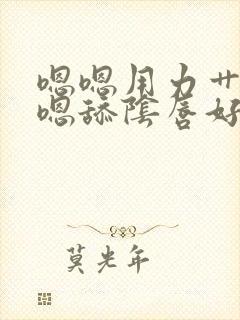 嗯嗯用力艹
嗯舔陰唇好
莫光年